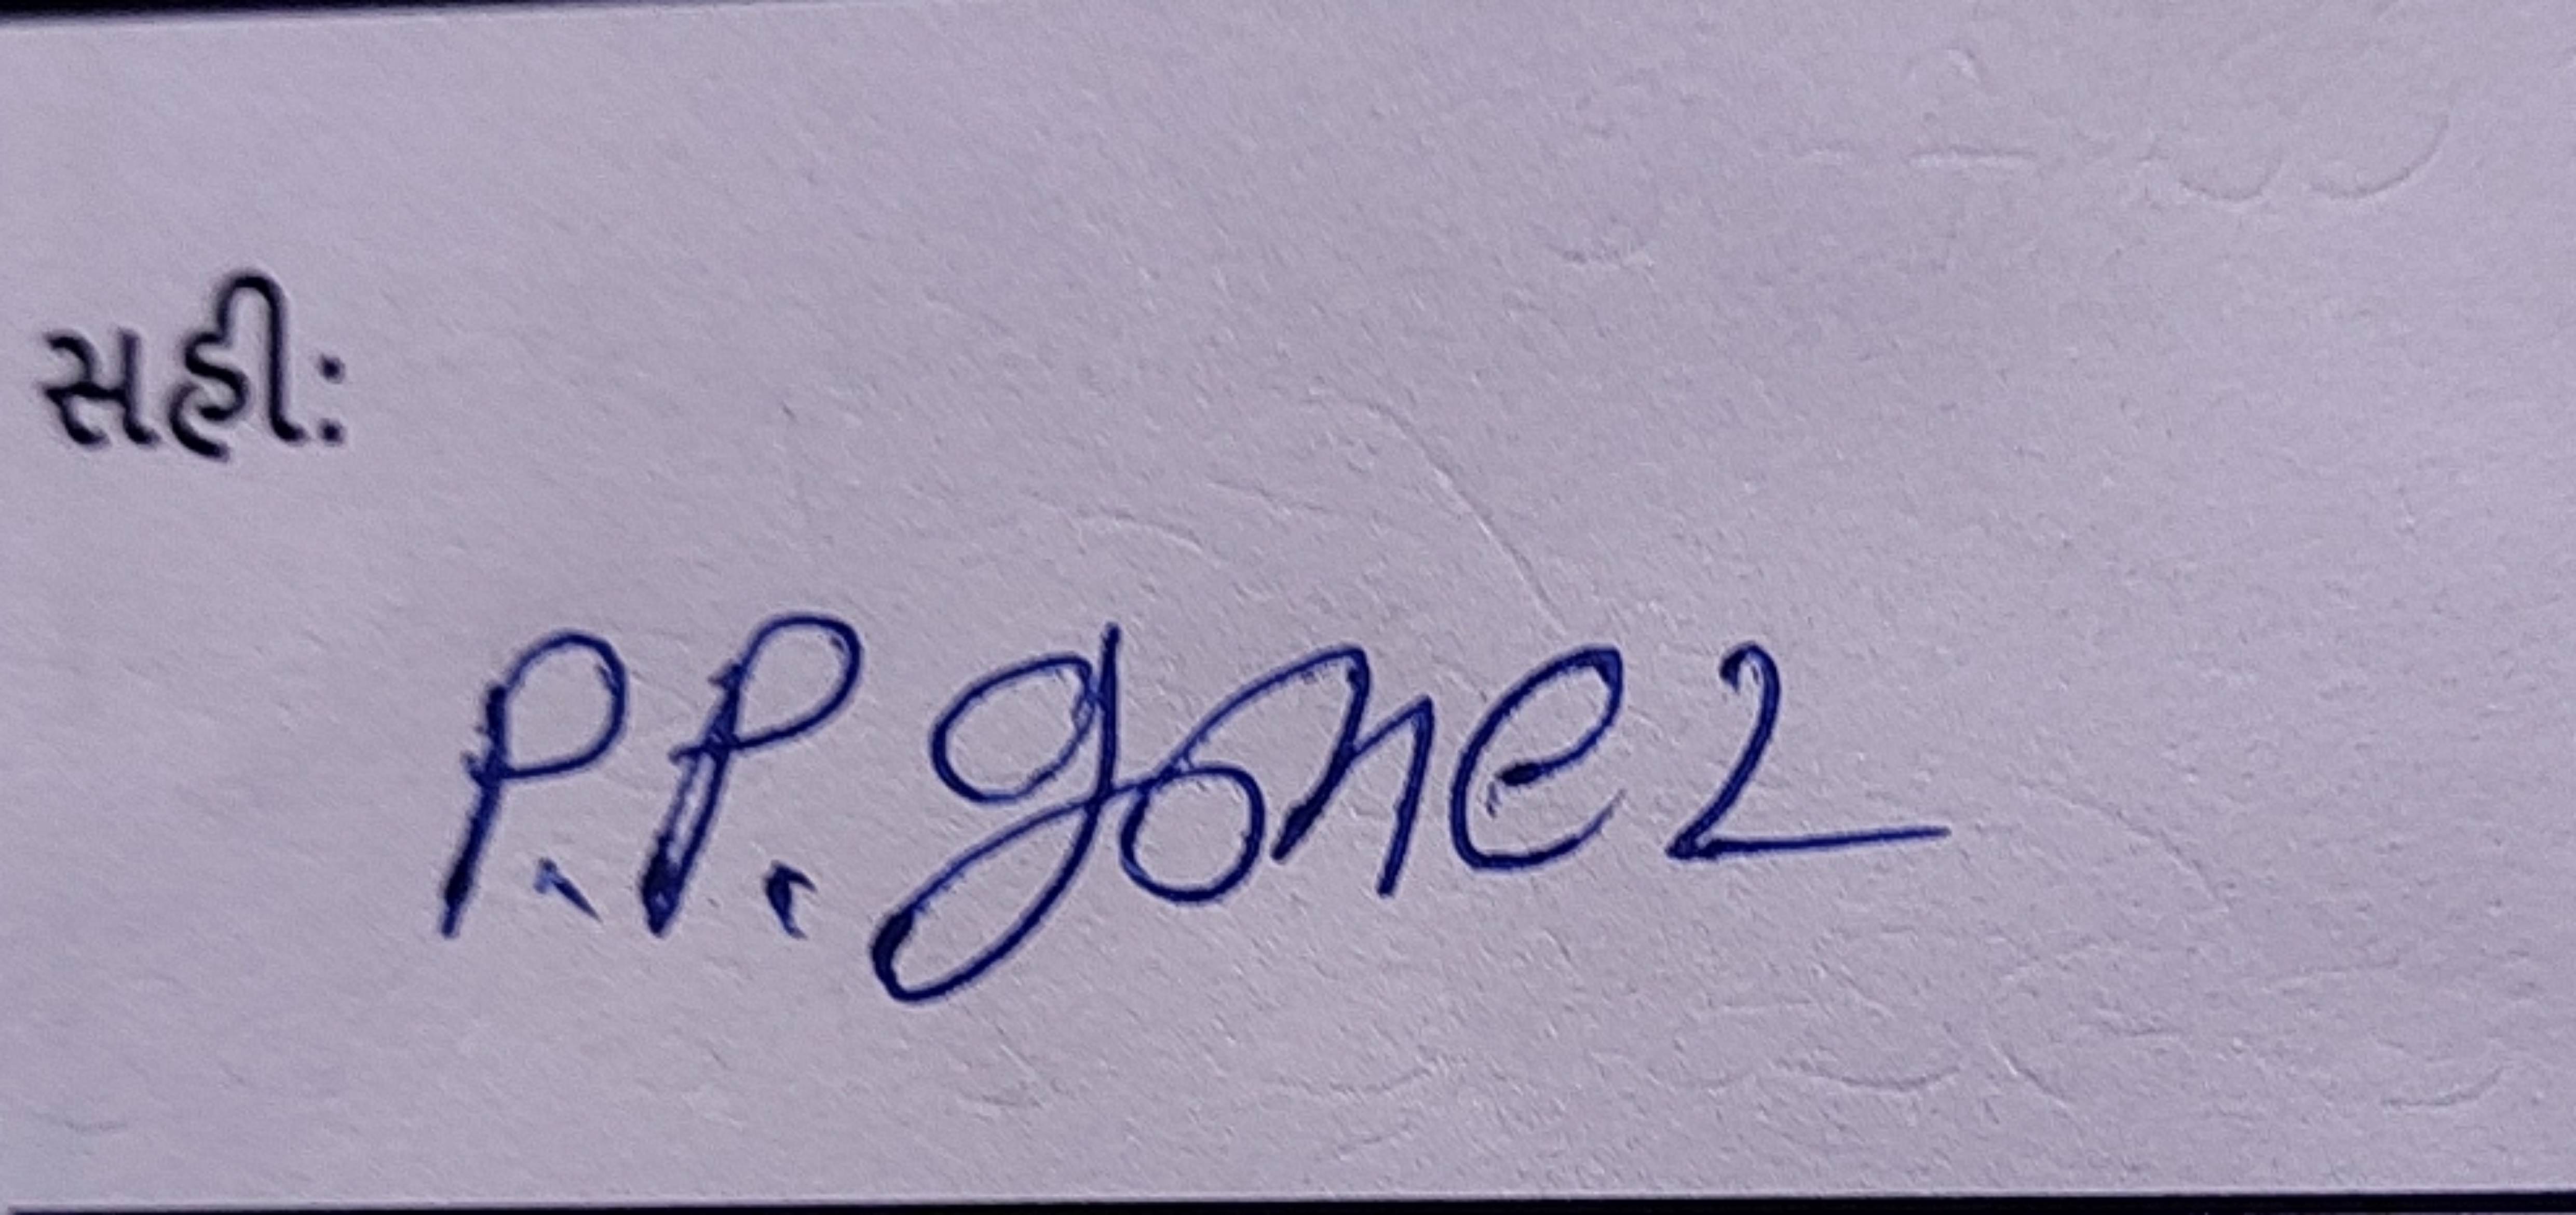 સહી:
P.P. gonez